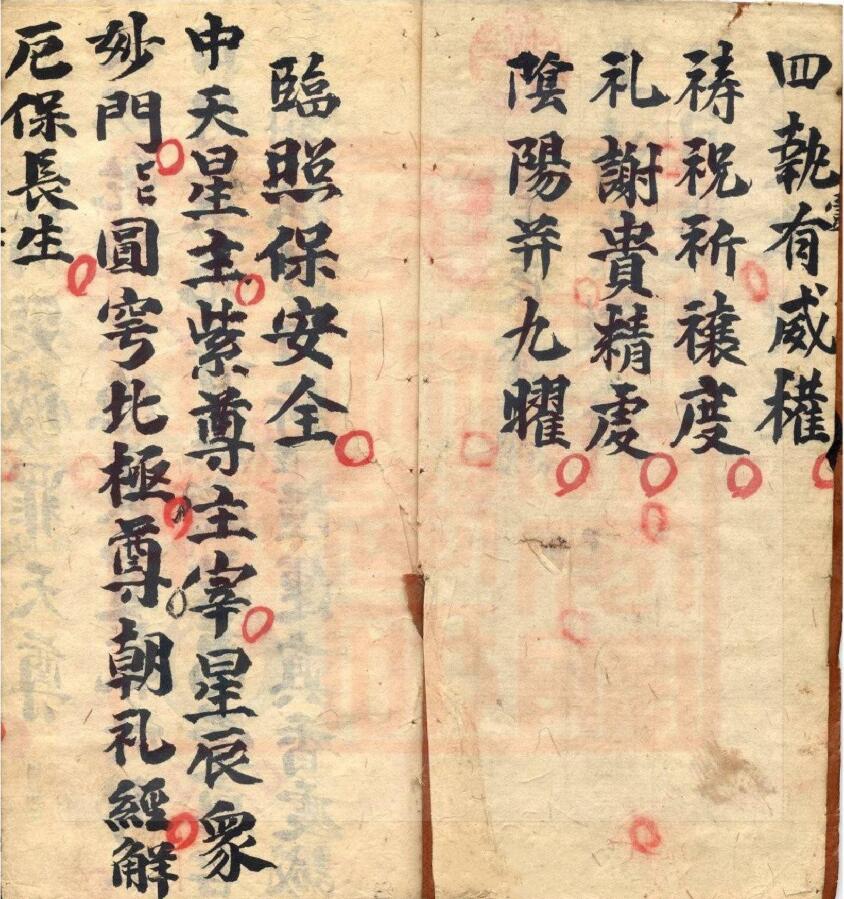 四執有威權
祷祝祈禳度
礼謝貴精虔
隂陽并九曜
臨照保安全
中天星主紫尊主宰星辰眾
妙門〻〻圓穹北極尊朝礼經解
厄保長生